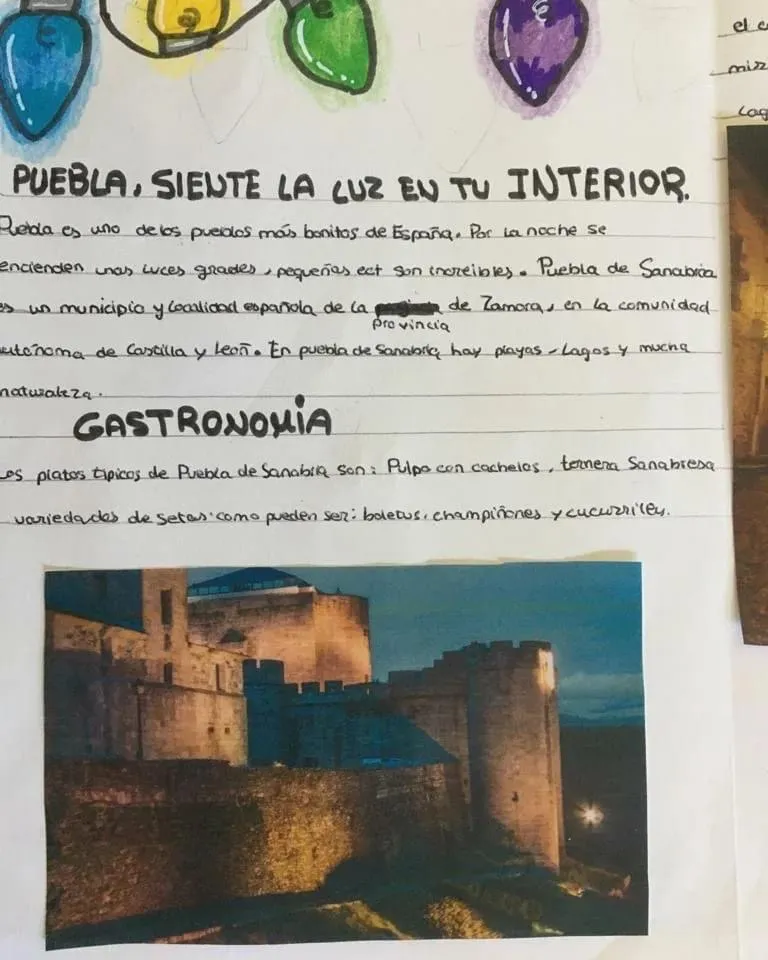 PUEBLA, SIENTE LA LUZ EN TU INTERIOR.
Puebla es uno de los pueblos más bonitos de España. Por la noche se
encienden unas luces grades, pequeñas ect son increibles. Puebla de Sanabria
es un municipio y localidad española de la provincia de Zamora, en la comunidad
autónoma de Castilla y León. En puebla de Sanabria hay playas - Lagos y mucha
naturaleza.
GASTRONOMIA
Los platos tipicos de Puebla de Sanabria son: Pulpo con cachelos, ternera Sanabresa
variedades de setas como pueden ser: boletus, champiñones y cucurriles.
el